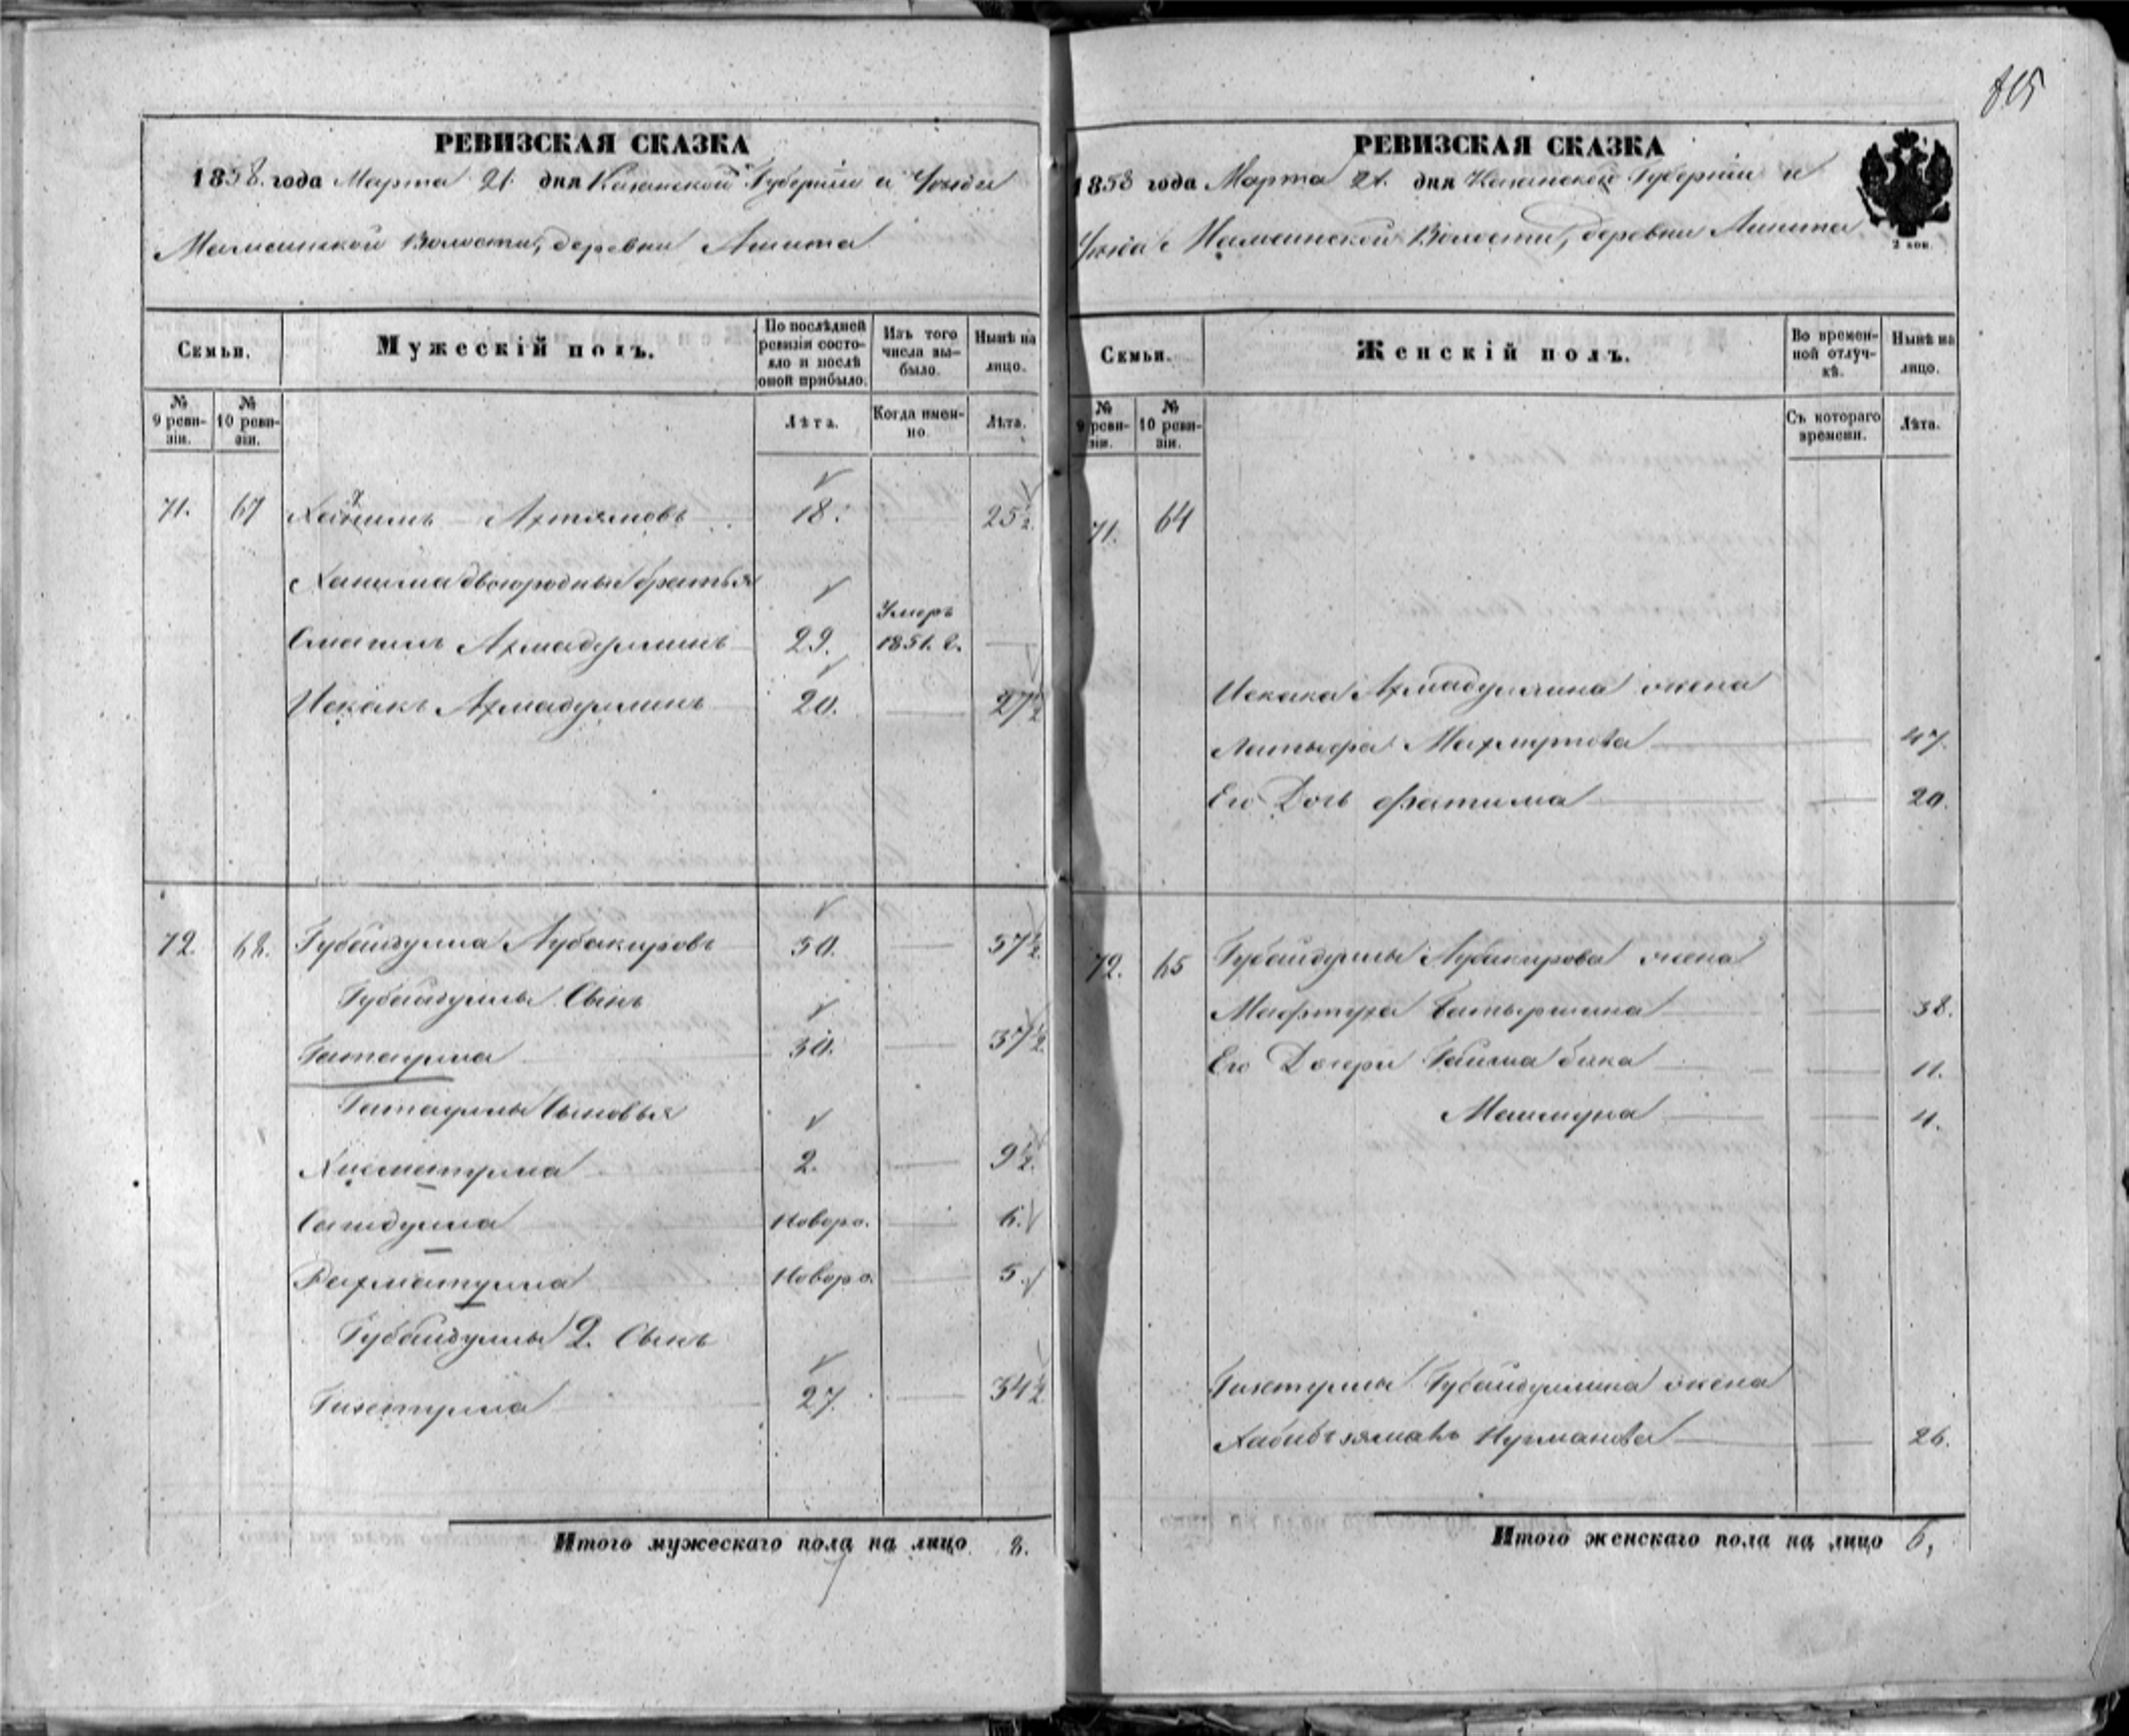 815
РЕВИЗСКАЯ СКАЗКА
1858 года Марта 21 дня Казанской Губерніи и Уѣзда
Мамсинской Волости, деревни Ашита
Семьи.
Мужескій полъ.
По послѣдней ревизіи состояло и послѣ оной прибыло.
Изъ того числа выбыло.
Нынѣ на лицо.
№ 9 ревизіи.
№ 10 ревизіи.
Лѣта.
Когда именно.
Лѣта.
71. 67 Ханимъ Ахтямовъ 18. 25½
Ханима двоюродныи братья
Смагилъ Ахмадуллинъ 29. Умеръ 1851. г.
Исхакъ Ахмадуллинъ 20. 27½
72. 68. Губайдулла Аубакировъ 50. 57½
Губайдуллы Сынъ
Гатаулла 30. 37½
Гатауллы Сыновья
Хисматулла 2. 9½
Сагидулла Новоро. 6.
Рахматулла Новоро. 5.
Губайдуллы 2. Сынъ
Гизетулла 27. 34½
Итого мужескаго пола на лицо 8.
7
РЕВИЗСКАЯ СКАЗКА
1858 года Марта 21. дня Казанской Губерніи и
Уѣзда Мамсинской Волости, деревни Ашита
2 коп.
Семьи.
Женскій полъ.
Во временной отлучкѣ.
Нынѣ на лицо.
№ 9 ревизіи.
№ 10 ревизіи.
Съ котораго времени.
Лѣта.
71. 64
Исхака Ахмадуллина жена
Латыфа Махмутова 47.
Его Дочь Фатима 20.
72. 65 Губайдуллы Аубакирова жена
Мафтуха Батыршина 38.
Его Дочери Гайша бика 11.
Маймуна 4.
Гизетуллы Губайдуллина жена
Хабибъзямалъ Нугманова 26.
Итого женскаго пола на лицо 6,